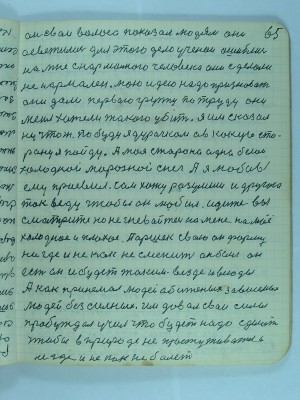 65
он свои волоса показал людям они
осветились для этого дело учений ошибки
на мне с нармального человека они сделали
не нармален. мою идею надо признавать
они дали первою группу по труду они
меня хотели такого убить. я им сказал
ну что ж. Побуду я дураком в какую сто-
рону я пойду. А моя старана одна была
холодной морозной снег А я любил
ему приемлем. Сам хожу разумши и других
так веду чтобы он любил. идите вы
смотрите но не гневайтеся на мене на моё
холодное и плохое. Паршек свою он форму
нигде и не как не сменит как был он
есть он и будет таким везде и всюды
А как принемал людей обиженых зависимых
людей без сильных. им довал свои силы
пробуждал учил что будет надо сделать
чтобы в природе не простуживатся
и где и не как не болеть